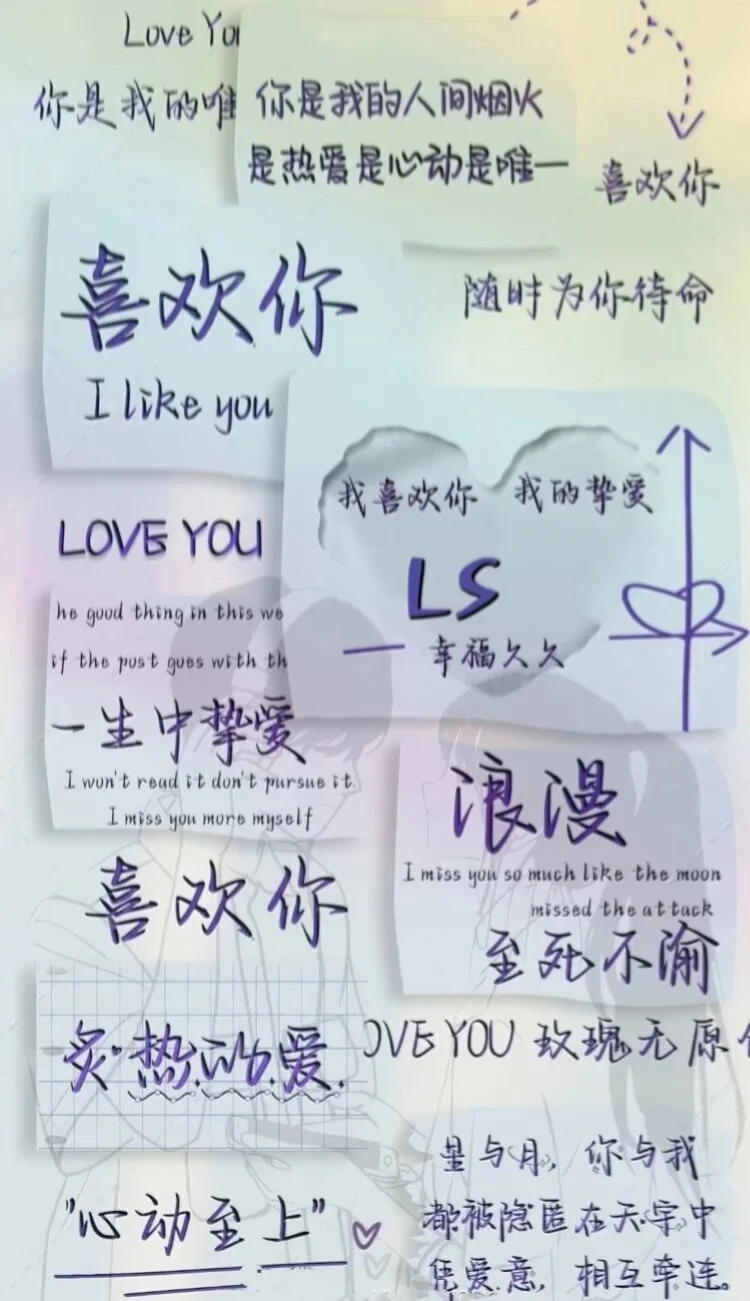 Love You
你是我的唯
你是我的人间烟火
是热爱是心动是唯一
喜欢你
喜欢你
I like you
随时为你待命
我喜欢你 我的挚爱
LS
幸福久久
LOVE YOU
he good thing in this we
if the post goes with th
一生中挚爱
I won't read it don't pursue it.
I miss you more myself
浪漫
I miss you so much like the moon
missed the attack
至死不渝
喜欢你
炙热的爱
OVE YOU 玫瑰无原
"心动至上"
星与月，你与我
都被隐匿在天字中
凭爱意，相互牵连。